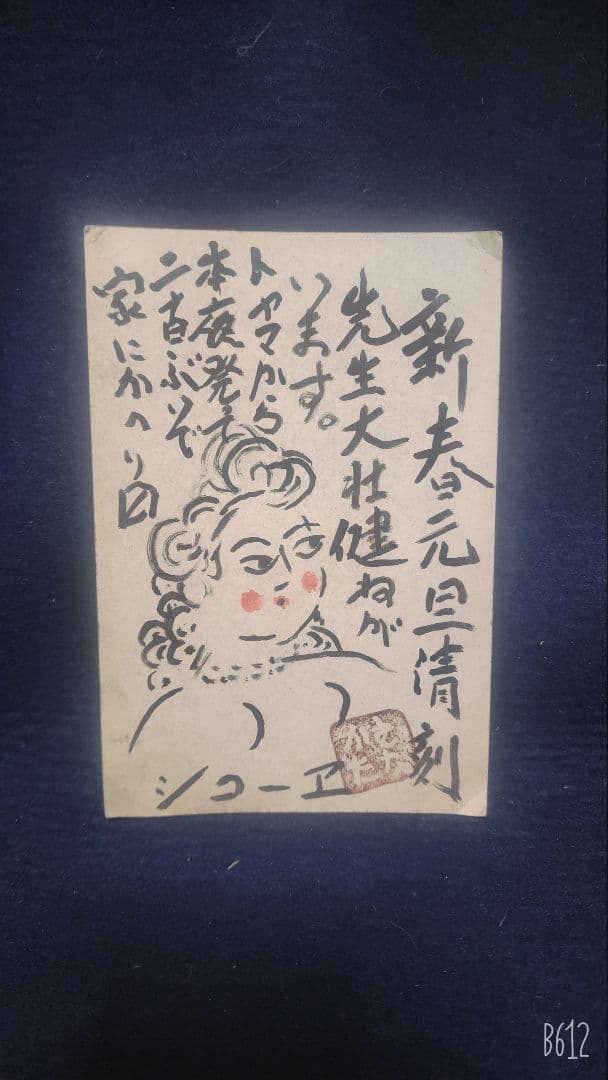 新春元旦清刻
先生大壮健ねが
います。
トヤマから
本夜発
家にかへり〼
シコーヱ
B612